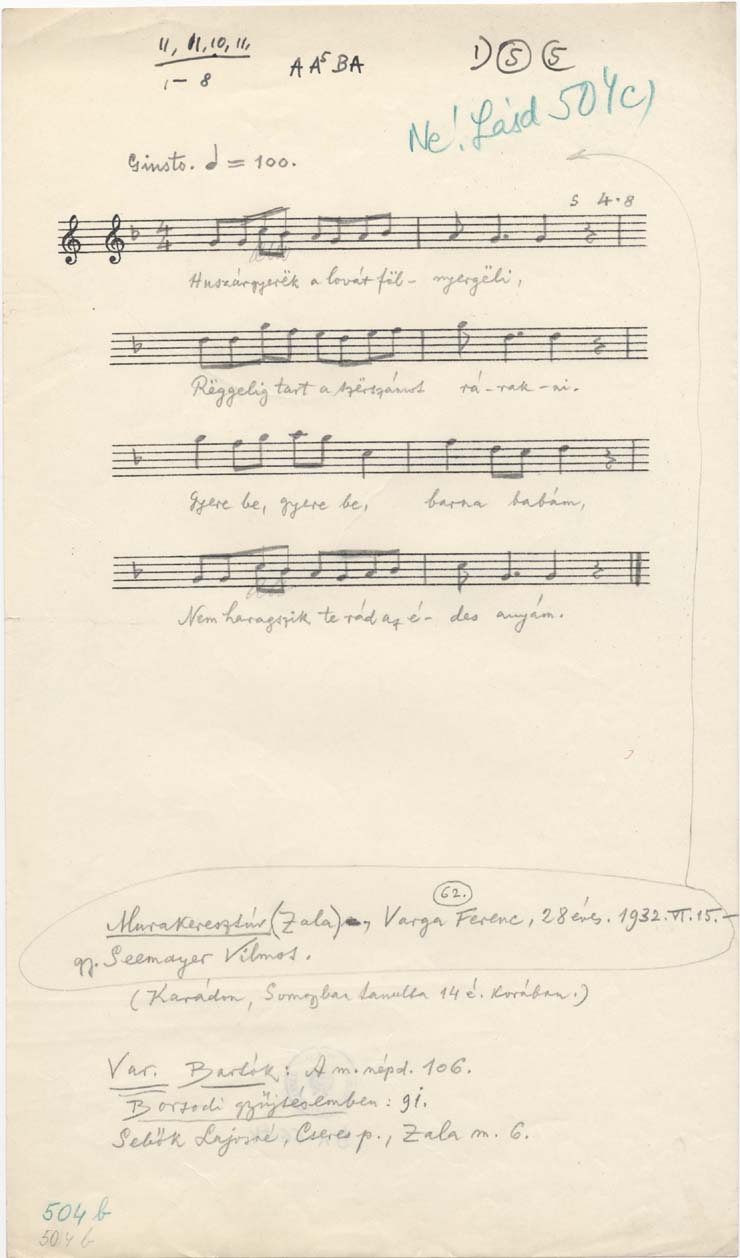 11, 11, 10, 11,
1 – 8
A A⁵ B A
1) 5 5
Ne! Lásd 504c)
Giusto. = 100.
5 4·8
4
4
Huszárgyerëk a lovát föl- nyergëli,
Rëggelig tart a szërszámot rá-rak-ni.
Gyere be, gyere be, barna babám,
Nem haragszik te rád az é- des anyám.
62.
Murakeresztúr (Zala), Varga Ferenc, 28 éves. 1932. VI. 15. –
gy. Seemayer Vilmos.
(Karádon, Somogyban tanulta 14 é. korában.)
Var. Bartók: A m. népd. 106.
Borsodi gyűjtésemben: 9i.
Sebők Lajosné, Cseres p., Zala m. 6.
504 b
504 b